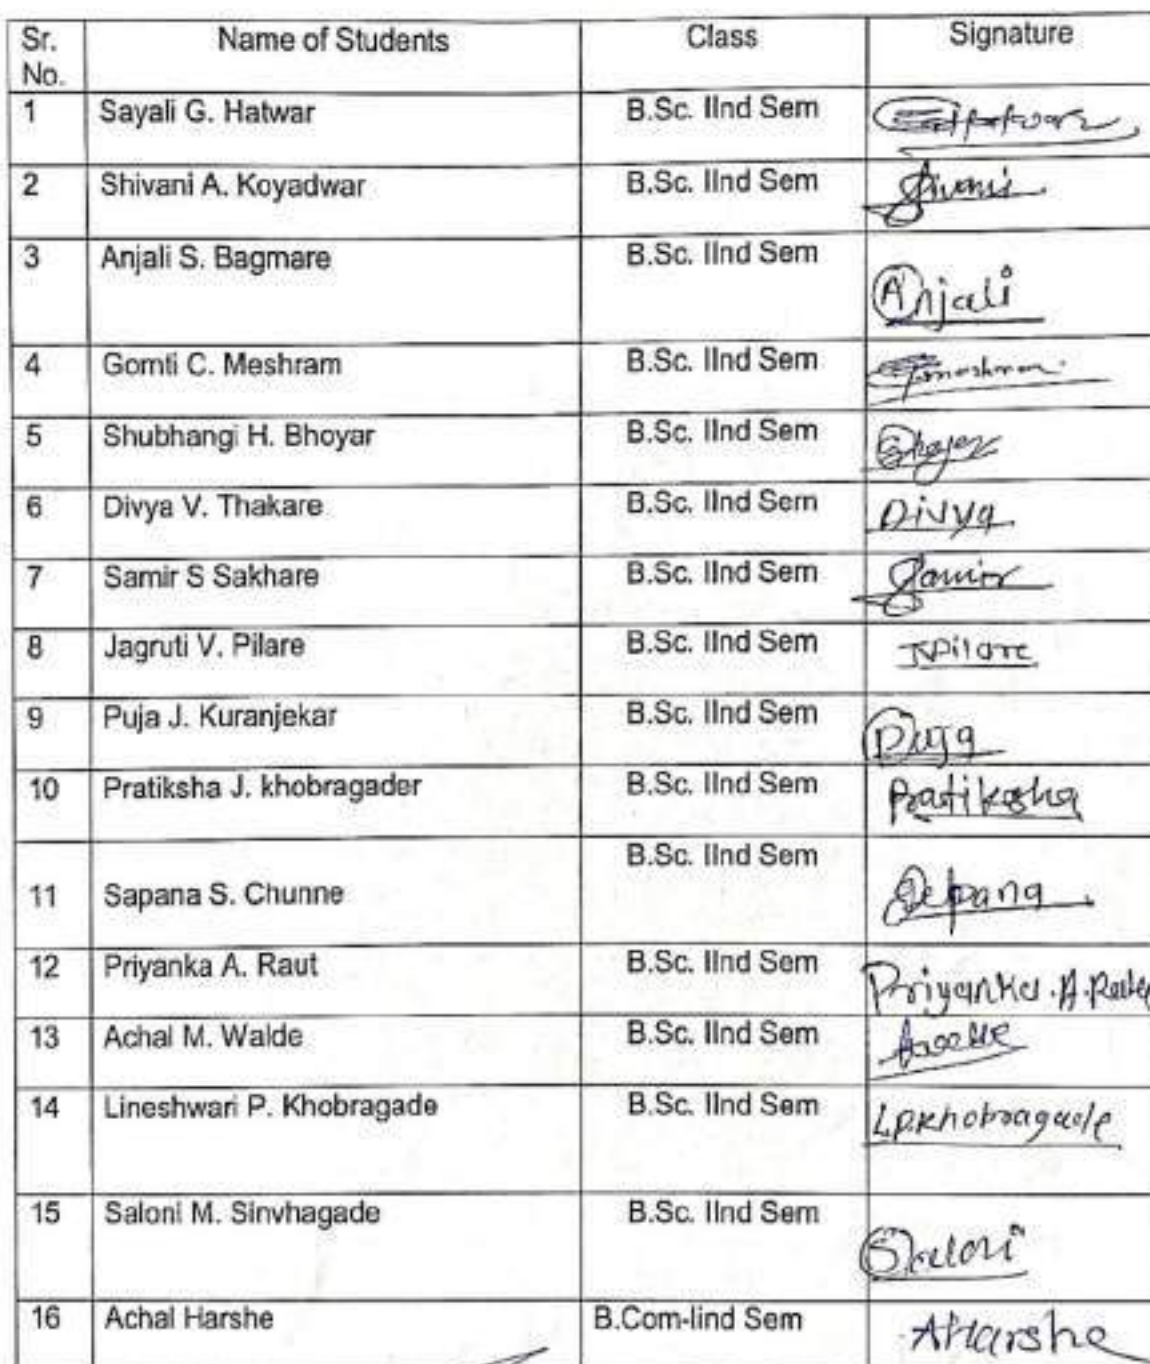 Sr. No. Name of Students Class Signature
1 Sayali G. Hatwar B.Sc. IInd Sem
2 Shivani A. Koyadwar B.Sc. IInd Sem Shivani
3 Anjali S. Bagmare B.Sc. IInd Sem Anjali
4 Gomti C. Meshram B.Sc. IInd Sem
5 Shubhangi H. Bhoyar B.Sc. IInd Sem
6 Divya V. Thakare B.Sc. IInd Sem Divya
7 Samir S Sakhare B.Sc. IInd Sem Samir
8 Jagruti V. Pilare B.Sc. IInd Sem JVPilare
9 Puja J. Kuranjekar B.Sc. IInd Sem Puja
10 Pratiksha J. khobragader B.Sc. IInd Sem Pratiksha
B.Sc. IInd Sem
11 Sapana S. Chunne
12 Priyanka A. Raut B.Sc. IInd Sem Priyanka.A.
13 Achal M. Walde B.Sc. IInd Sem
14 Lineshwari P. Khobragade B.Sc. IInd Sem L.P.Khobragade
15 Saloni M. Sinvhagade B.Sc. IInd Sem Saloni
16 Achal Harshe B.Com-Iind Sem AHarshe